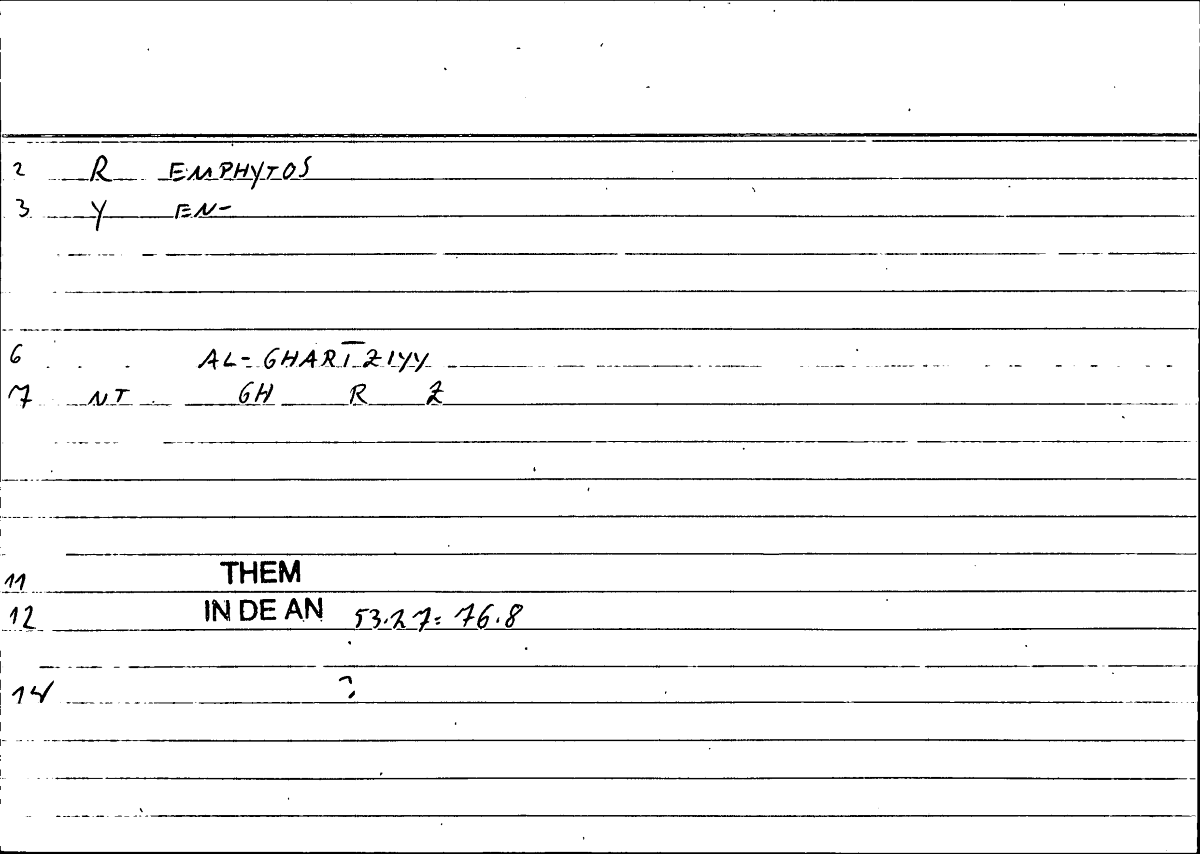 2 R EMPHYTOS
3 Y EN-
6 AL-GHARĪZIYY
7 NT GH R Z
11 THEM
12 IN DE AN 53.27=76.8
14 ?